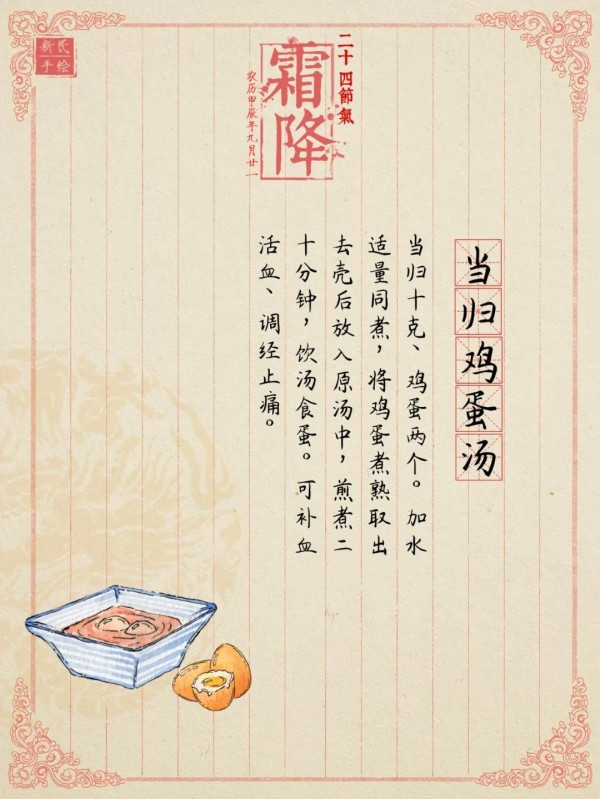 新民
手绘
二十四節氣
霜降
农历甲辰年九月廿一
当归鸡蛋汤
当归十克、鸡蛋两个。加水
适量同煮，将鸡蛋煮熟取出
去壳后放入原汤中，煎煮二
十分钟，饮汤食蛋。可补血
活血、调经止痛。